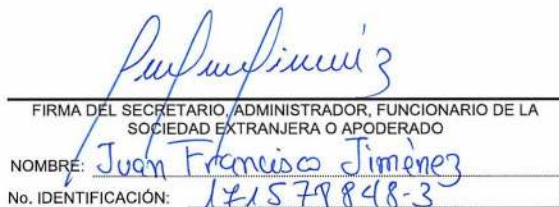 FIRMA DEL SECRETARIO, ADMINISTRADOR, FUNCIONARIO DE LA
SOCIEDAD EXTRANJERA O APODERADO
NOMBRE: Juan Francisco Jiménez
No. IDENTIFICACIÓN: 171579848-3